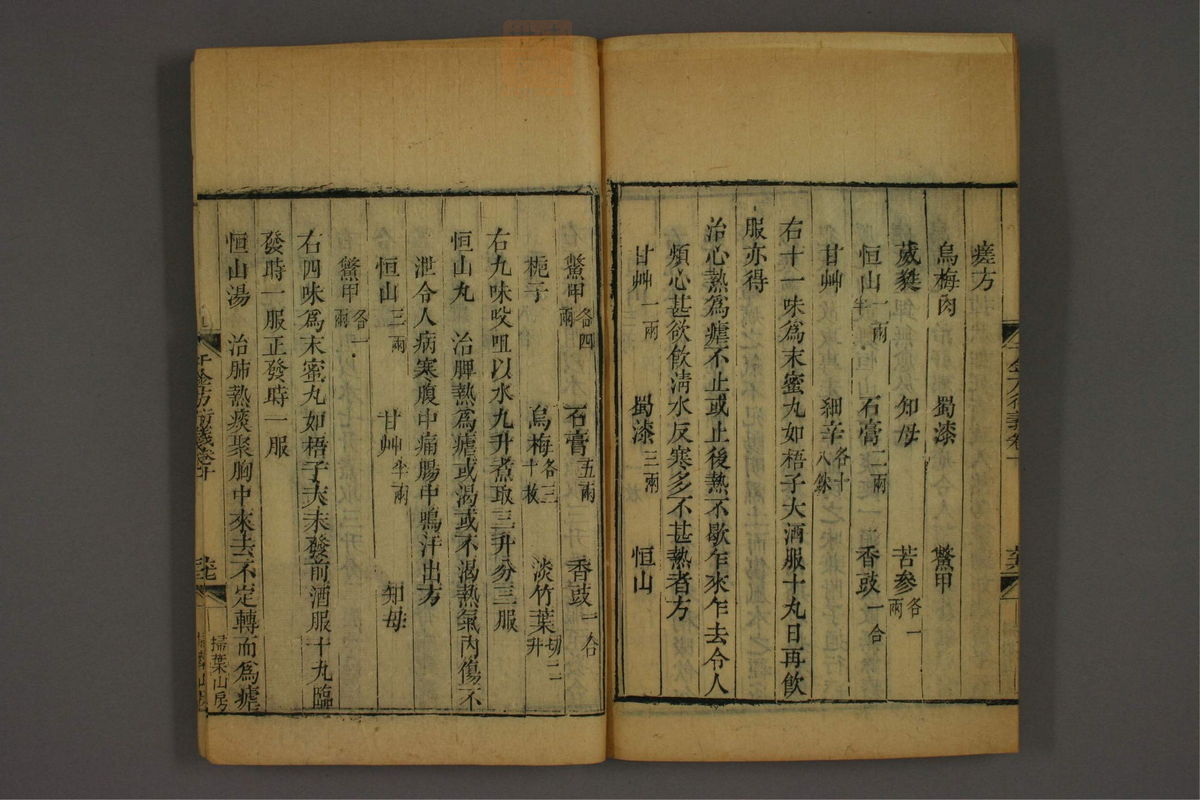 瘧方
烏梅肉　蜀漆　鱉甲
葳蕤　知母　苦參各一兩
恒山一兩半　石膏二兩　香豉一合
甘艸　細辛各十八銖
右十一味爲末蜜丸如梧子大酒服十丸日再飲
服亦得
治心熱爲瘧不止或止後熱不歇乍來乍去令人
煩心甚欲飲淸水反寒多不甚熱者方
甘艸一兩　蜀漆三兩　恒山
鱉甲各四兩　石膏五兩　香豉一合
梔子　烏梅各三十枚　淡竹葉切二升
右九味㕮咀以水九升煮取三升分三服
恒山丸　治脾熱爲瘧或渴或不渴熱氣內傷不
泄令人病寒腹中痛腸中鳴汗出方
恒山三兩　甘艸半兩　知母
鱉甲各一兩
右四味爲末蜜丸如梧子大未發前酒服十丸臨
發時一服正發時一服
恒山湯　治肺熱痰聚胸中來去不定轉而爲瘧
千金方衍義卷十
掃葉山房